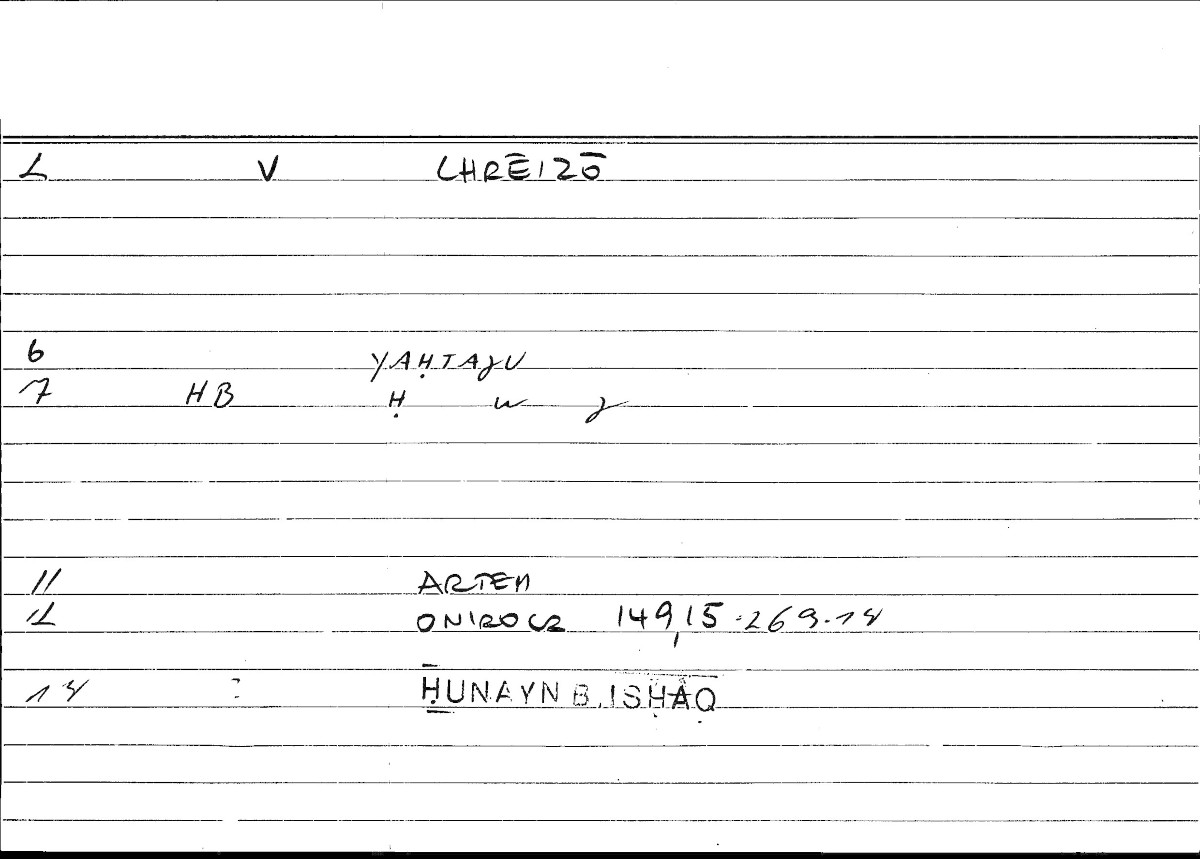 L V CHRĒIZŌ
6 YAḤTAJU
7 HB Ḥ W J
11 ARTEM
12 ONIROCR 149,15 · 269.14
14 : ḤUNAYN B. ISḤĀQ